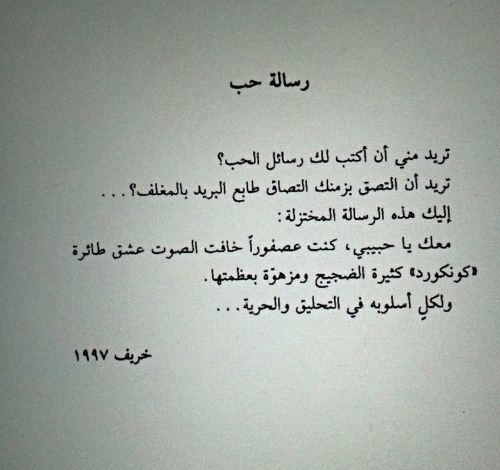 رسالة حب
تريد مني أن أكتب لك رسائل الحب؟
تريد أن التصق بزمنك التصاق طابع البريد بالمغلف؟...
إليك هذه الرسالة المختزلة:
معك يا حبيبي، كنت عصفوراً خافت الصوت عشق طائرة
«كونكورد» كثيرة الضجيج ومزهوّة بعظمتها.
ولكلٍ أسلوبه في التحليق والحرية...
خريف ١٩٩٧